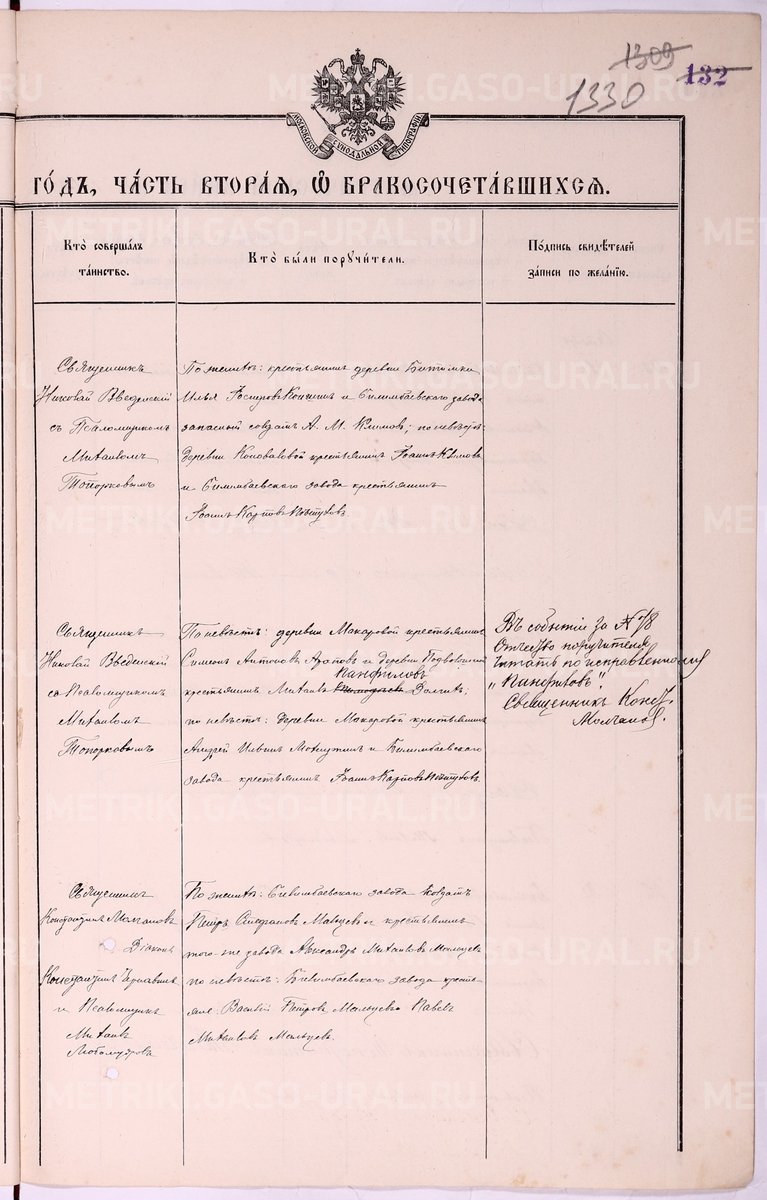 1309
1330
132
МОСКОВСКОЙ СѴНОДАЛЬНОЙ ТИПОГРАФІИ
ГО́ДЪ, ЧА́СТЬ ВТОРА́Я, Ѡ БРАКОСОЧЕТА́ВШИХСЯ.
Кто̀ соверша́лъ
та́инство.
Кто̀ бы́ли поручи́тели.
По́дпись свидѣ́телей
за́писи по жела́нію.
Священникъ
Николай Введенскій
съ Псаломщикомъ
Михаиломъ
Топорковымъ
По женихѣ: крестьянинъ деревни Битимки
Илья и Билимбаевскаго завода
запасный солдатъ А. М. Климовъ; по невѣстѣ:
деревни Коноваловой крестьянинъ Іоаннъ
и Билимбаевскаго завода крестьянинъ
Іоаннъ Карповъ Пѣтуховъ
Священникъ
Николай Введенскій
съ Псаломщикомъ
Михаиломъ
Топорковымъ
По невѣстѣ: деревни Макаровой крестьянинъ
Симеонъ Антоновъ и деревни
Панфиловъ
крестьянинъ Михаилъ
по невѣстѣ: деревни Макаровой крестьянинъ
Андрей Ильинъ и Билимбаевскаго
завода крестьянинъ Іоаннъ Карповъ Пѣтуховъ
Въ событіи за № 78
Отчество поручителя
читать по исправленному
„Панфиловъ".
Священникъ Конст.
Молчановъ.
Священникъ
Константинъ Молчановъ
Діаконъ
Константинъ
и Псаломщикъ
Михаилъ
Любомудровъ
По женихѣ: Билимбаевскаго завода солдатъ
Петръ Стефановъ Мальцевъ и крестьянинъ
того-же завода Александръ Михаиловъ Мальцевъ
по невѣстѣ: Билимбаевскаго завода кресть-
яне Василій Петровъ Мальцевъ и Павелъ
Михаиловъ Мальцевъ.
METRIKI.GASO-URAL.RU